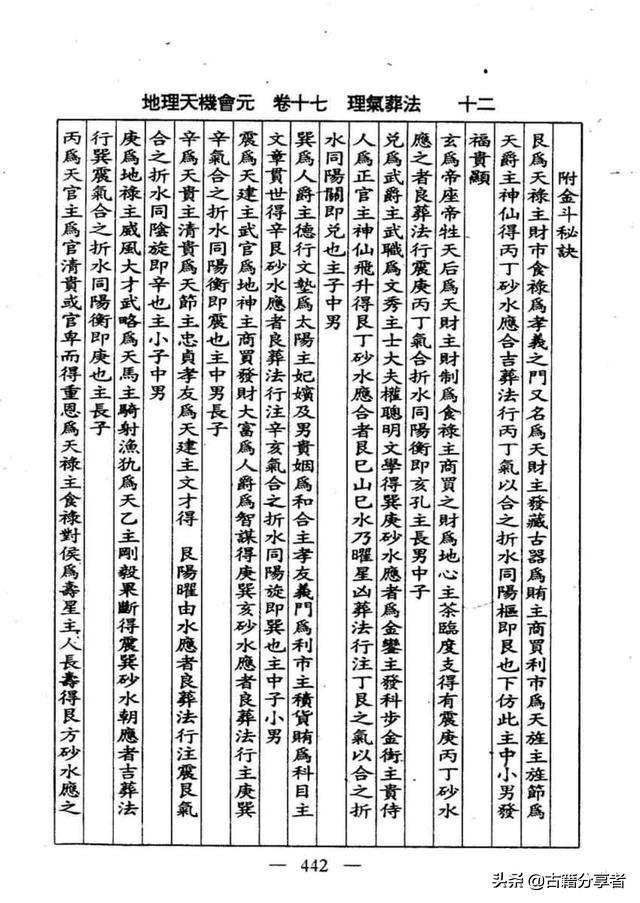 地理天機會元　卷十七　理氣葬法　十二
附金斗秘訣
艮爲天祿主財市食祿爲孝義之門又名爲天財主發藏古器爲賄主商買利市爲天旌主旌節爲
天爵主神仙得丙丁砂水應合吉葬法行丙丁氣以合之折水同陽樞即艮也下仿此主中小男發
福貴顯
玄爲帝座帝牲天后爲天財主財制爲食祿主商買之財爲地心主茶臨度支得有震庚丙丁砂水
應之者良葬法行震庚丙丁氣合折水同陽衡即亥孔主長男中子
兌爲武爵主武職爲文秀主士大夫權聰明文學得巽庚砂水應者爲金鑾主發科步金街主貴侍
人爲正官主神仙飛升得艮丁砂水應合者艮巳山巳水乃曜星凶葬法行注丁艮之氣以合之折
水同陽關即兌也主子中男
巽爲人爵主德行文塾爲太陽主妃嬪及男貴姻爲和合主孝友義門爲利市主積貨賄爲科目主
文章貫世得辛艮砂水應者良葬法行注辛亥氣合之折水同陽旋即巽也主中子小男
震爲天建主武官爲地神主商買發財大富爲人爵爲智謀得庚巽亥砂水應者良葬法行主庚巽
辛氣合之折水同陽衡即震也主中男長子
辛爲天貴主清貴爲天節主忠貞孝友爲天建主文才得　艮陽曜由水應者良葬法行注震艮氣
合之折水同陰旋即辛也主小子中男
庚爲地祿主威風大才武略爲天馬主騎射漁㹤爲天乙主剛毅果斷得震巽砂水朝應者吉葬法
行巽震氣合之折水同陽衡即庚也主長子
丙爲天官主爲官清貴或官卑而得重恩爲天祿主食祿對侯爲壽星主人長壽得艮方砂水應之
— 442 —
头条 @古籍分享者